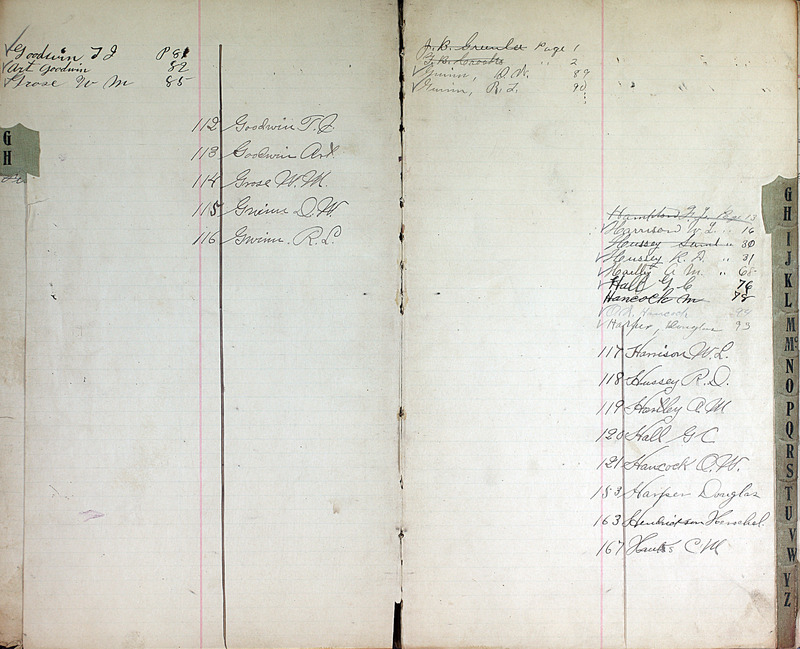 Goodwin T J P 81
Art Goodwin 82
Grose W M 85
G
H
112 Goodwin T. J.
113 Goodwin Art
114 Grose W. M.
115 Gwinn D. W.
116 Gwinn. R. L.
J. B. Greenlee Page 1
" " 2
Gwinn, D. W. 89
Gwinn, R. L. 90
Hampton F. J. Page 13
Harrison W L. " 16
Hussey Saml " 30
Hussey R. D. " 31
A M. " 65
Hall G C 76
Hancock M 78
Hancock
Harper, Douglas 93
117 Harrison W. L.
118 Hussey R. D.
119 Hanley A M
120 Hall G C
121 Hancock O. W.
153 Harper Douglas
163 Hendrickson Herschel
167 C M
G
H
I
J
K
L
M
Mc
N
O
P
Q
R
S
T
U
V
W
Y
Z